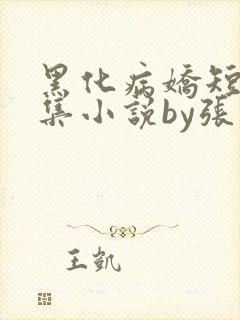 黑化病嬌短
集小説by張
王凱